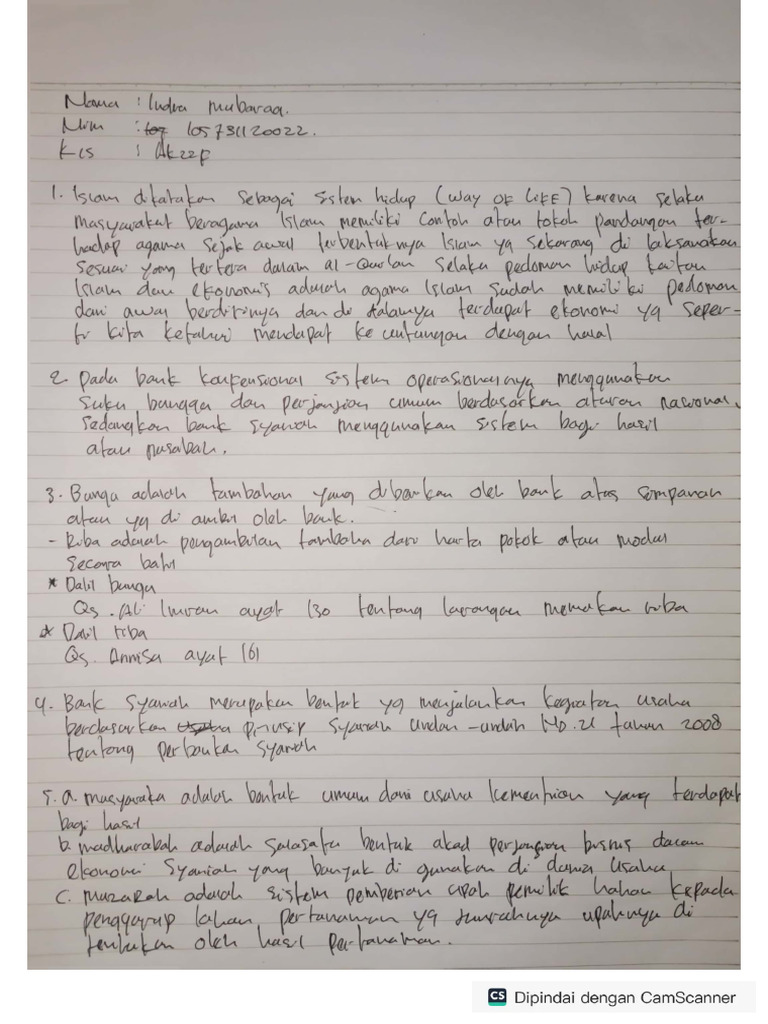 Nama : Indra mubaraq.
Nim : 105731120022.
Kls : Ak22F
1. Islam dikatakan sebagai sistem hidup (WAY OF LIFE) karena selaku
masyarakat beragama Islam memiliki contoh atau tokoh pandangan ter-
hadap agama sejak awal terbentuknya Islam yg sekarang di laksanakan
sesuai yang tertera dalam al-Qur'an selaku pedoman hidup kaitan
Islam dan ekonomis adalah agama Islam sudah memiliki pedoman
dari awal berdirinya dan di dalamya terdapat ekonomi yg seper-
ti kita ketahui mendapat keuntungan dengan halal
2. pada bank konfensional sistem operasionalnya menggunakan
suku bungga dan perjanjian umum berdasarkan aturan nasional,
sedangkan bank syariah menggunakan sistem bagi hasil
atau nusabah.
3. Bunga adalah tambahan yang dibarkan oleh bank atas simpanan
atau yg di ambil oleh bank.
- Riba adalah pengambilan tambaha dari harta pokok atau modal
secara batil
* Dalil bunga
Qs. Ali Imran ayat 130 tentang larangan memakan riba
* Dalil riba
Qs. Annisa ayat 161
4. Bank syariah merupakan bentuk yg menjalankan kegiatan usaha
berdasarkan prinsip syariah undan-undah No. 21 tahun 2008
tentong perbankan syariah
5. a. masyaraka adalah bentuk umum dari usaha yang terdapat
bagi hasil
b. madharabah adalah salasatu bentuk akad perjangian bisnis dalam
ekonomi syariah yang banyak di gunakan di dunia usaha
c. muzarah adalah sistem pemberian upah pemilik lahan kepada
penggarap lahan pertanaman yg jumlahnya upahnya di
tentukan oleh hasil pertanaman.
CS Dipindai dengan CamScanner